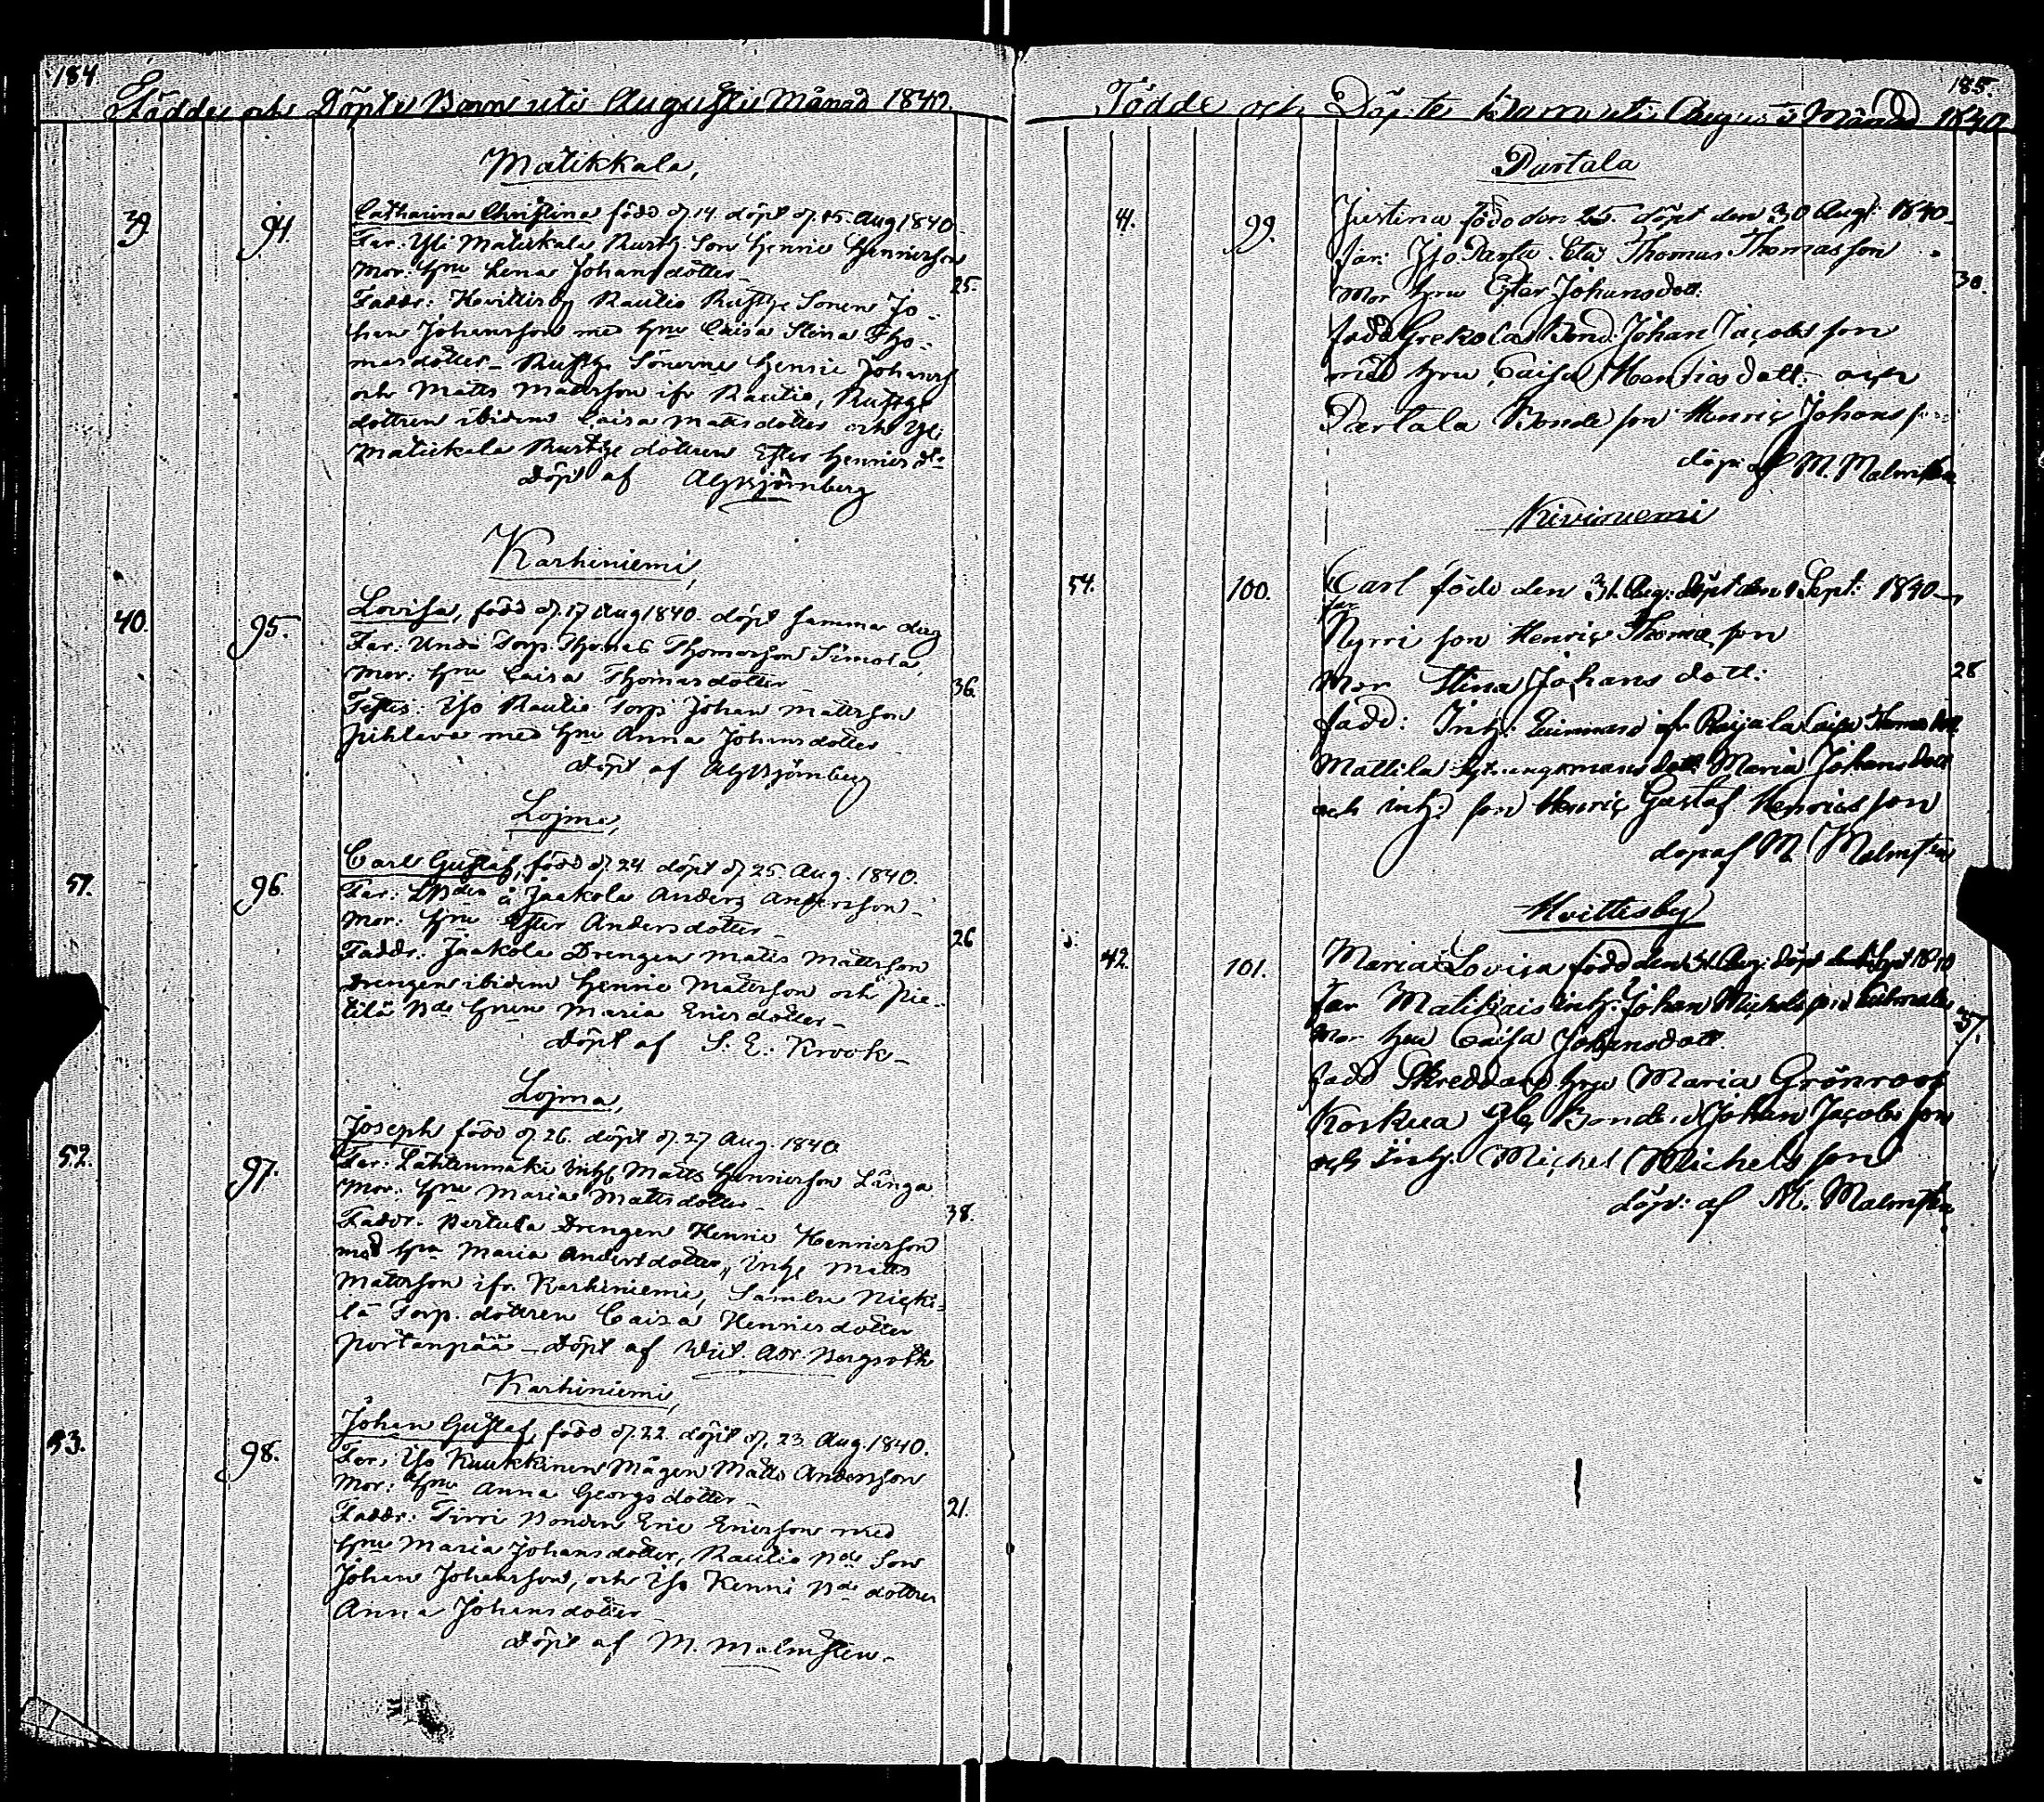 184
Födde och Döpte Barn uti Augusti Månad 1840.
Matikkala,
39
94.
Catharina Christina född d. 14. döpt d. 15. Aug 1840
Far: Yli Matikkala Rusth. Son Henric Henricsson
Mor: Hru Lena Johansdotter
25.
Faddr: Kvittisby Rautio Rusth. Sonen Jo-
han Johansson med hru Caisa Stina Tho-
masdotter - Rusth. Sönerne Henric Johanss
och Matts Mattsson ifr Rautio, Rusth.
dottren ibidem Caisa Mattsdotter och Yli
Matikkala Rusth. dottren Ester Henricsdr
Döpt af Björnberg
Karhiniemi,
40.
95.
Lovisa, född d. 17 Aug 1840. döpt samma dag
Far: Torp. Thomas Thomasson Simola
Mor: Hru Caisa Thomasdotter
36.
Testis: Iso Rautio Torp Johan Mattsson
Pihlava med hru Anna Johansdotter
Döpt af Björnberg
Lojma,
51.
96.
Carl Gustaf, född d. 24. döpt d. 25. Aug. 1840.
Far: å Jaakola Anders Andersson
Mor: Hru Ester Andersdotter
26
Faddr: Jaakola Drengen Matts Mattsson
Drengen ibidem Henric Mattsson och Pie-
tilä Bde hrun Maria Ericsdotter
Döpt af S. E. Krook
Lojma,
52.
97.
Joseph född d. 26. döpt d. 27 Aug. 1840.
Far: Lähtenmäki Inhs Matts Henricsson Långa
Mor: Hru Maria Mattsdotter
38.
Faddr: Bertula Drengen Henric Henricsson
med hru Maria Andersdotter, Inhs Matts
Mattsson ifr Karhiniemi, Sambu Nicki-
lä Torp. dottren Caisa Henricsdotter
Portanpää - Döpt af Adr. Bergroth
Karhiniemi,
53.
98.
Johan Gustaf, född d. 22. döpt d. 23. Aug. 1840.
Far: Iso Kuukkinen Mågen Matts Andersson
Mor: Hru Anna Georgsdotter
21.
Faddr: Tirri Bonden Eric Ericsson med
hru Maria Johansdotter, Rautio Bde Son
Johan Johansson, och Iso Kenni Bde dottren
Anna Johansdotter
Döpt af M. Malmsten.
185.
Födde och Döpte Barn uti Augusti Månad 1840.
Partala
41.
99.
Justina född den 25. döpt den 30 Augt: 1840
far: Iso Thomas Thomasson
30.
Mor hru Ester Johansdott.
fadd Grekola Bond: Johan Jacobsson
med hru Caisa Henricsdott. och
Partala Bonde son Henric Johansson
döpt af M. Malmsten
Kiviniemi
54.
100.
Carl född den 31. Aug: döpt den 1 Sept: 1840
far
Nyrri son Henric Thomasson
Mor Stina Johansdott:
28
fadd: Inh: ifr Raijala Caisa Thomasdott
Mattila dott Maria Johansdott
och inh: son Henric Gustaf Henricsson
döp af M. Malmsten
Kvittisby
42.
101.
Maria Lovisa född den 31. Aug: döpt den Sept 1840
far Matikais inh: Johan Michelsson
Mor hru Caisa Johansdott
37.
fadd Skreddare hru Maria Grönroos
Koskua Yli Bonde Johan Jacobsson
och Inh: Michel Michelsson
döpt: af M. Malmsten